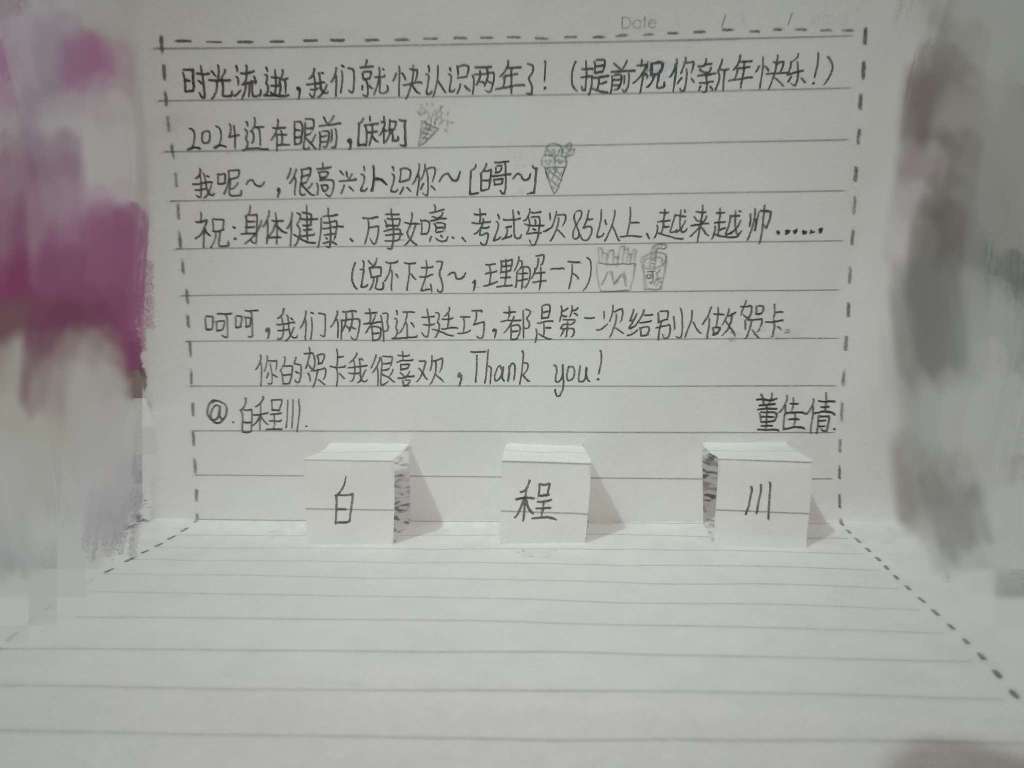 Date / /
时光流逝，我们就快认识两年了！（提前祝你新年快乐！）
2024近在眼前，[庆祝]
我呢～，很高兴认识你～[白哥～]
祝：身体健康、万事如意、考试每次85以上、越来越帅……
（说不下去了～，理解一下）
呵呵，我们俩都还挺巧，都是第一次给别人做贺卡。
你的贺卡我很喜欢，Thank you!
@.白程川. 董佳倩.
白 程 川